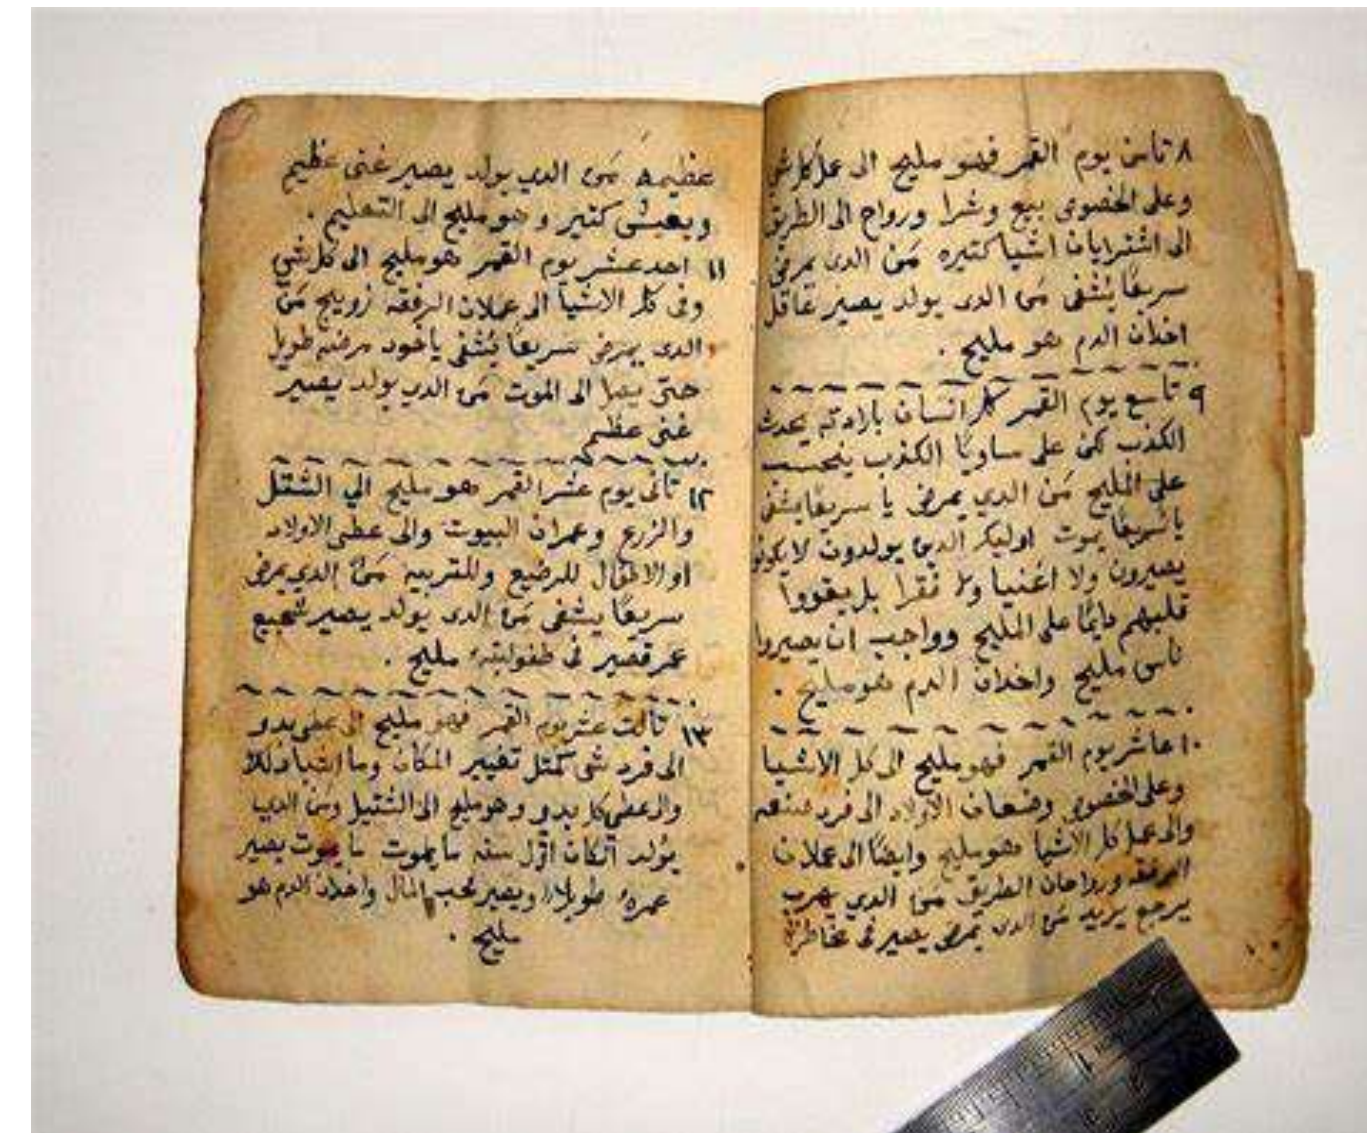 ٨ تامن يوم القمر فهو مليح الى عمل كل شي
وعلى الخصوص بيع وشرا ورواح الى الطريق
الى اشترايات اشيا كتيره من الدى يمرض
سريعًا يُشفى من الدى يولد يصير عاقل
اخدان الدم هو مليح .
٩ تاسع يوم القمر كل انسان بارادته يحدث
الكذب كمن على ساويًا الكذب ينحسب
على المليح من الدي يمرض يا سريعًا يشفى
يا سريعًا يموت اوليك الدين يولدون لا يكونو
يصيرون ولا اغنيا ولا فقرا بل يقووا
قلبهم دايمًا على المليح وواجب ان يصيروا
ناس مليح واخدان الدم هو مليح .
١٠ عاشر يوم القمر فهو مليح الى كل الاشيا
وعلى الخصوص وضعان الاولاد الى فرد صنعه
والى عمل كل الاشيا هو مليح وايضًا الى عملان
الرفقه ورواحان الطريق من الدي يهرب
يرجع يريد من الدى يمرض يصير فى مخاطرة
عظيمه من الدي يولد يصير غنى عظيم
ويعيش كتير و هو مليح الى التعليم .
١١ احد عشر يوم القمر هو مليح الى كل شي
وفى كل الاشيا الى عملان الرفقه زويج من
الدى يمرض سريعًا يُشفى ياخود مرضه طويل
حتى يصل الى الموت من الدي يولد يصير
غنى عظيم
١٢ تانى يوم عشر القمر هو مليح الي الشتل
والزرع وعمران البيوت والى عطى الاولاد
او الاطفال للرضيع وللتربيه من الدي يمرض
سريعًا يشفى من الدى يولد يصير شجيع
عمر قصير فى طفوليته مليح .
١٣ تالت عشر يوم القمر فهو مليح الى عطى بدو
الى فرد شى كمثل تغيير المكان وما
والى عطى كل بدو وهو مليح الى الشتيل ومن الديا
يولد انكان اول سنه ما يموت ما يموت يصير
عمره طويل ويصير محب المال واخدان الدم هو
مليح .